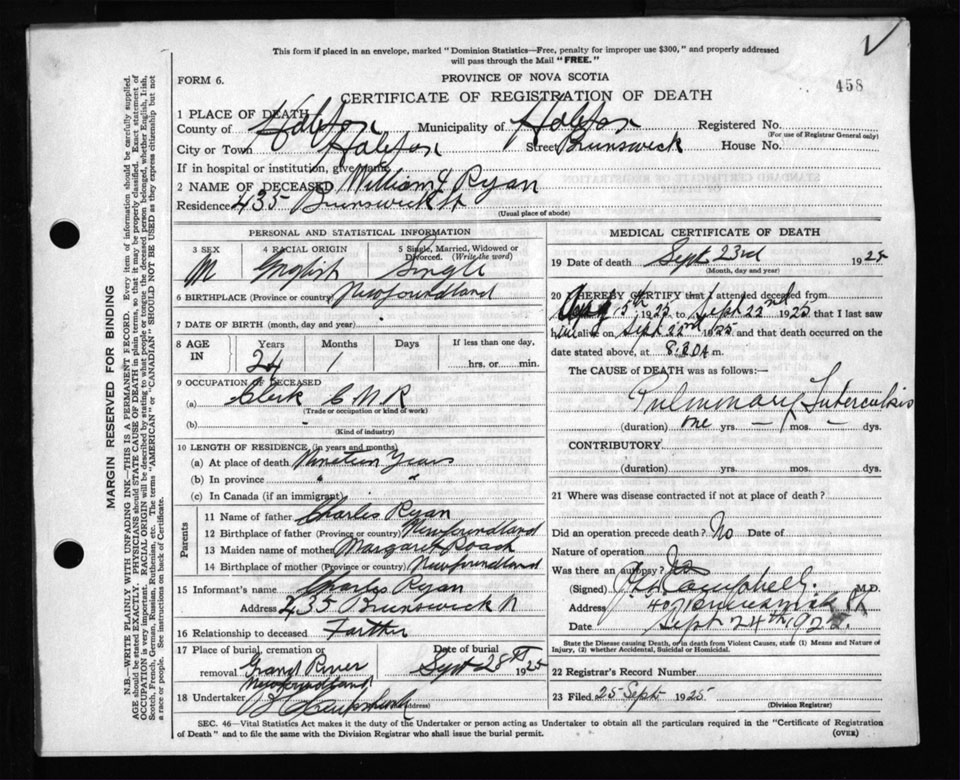 This form if placed in an envelope, marked "Dominion Statistics—Free, penalty for improper use $300," and properly addressed
will pass through the Mail "FREE."
458
FORM 6.
PROVINCE OF NOVA SCOTIA
CERTIFICATE OF REGISTRATION OF DEATH
1 PLACE OF DEATH
County of Halifax Municipality of Halifax Registered No.
(For use of Registrar General only)
City or Town Halifax Street Brunswick House No.
If in hospital or institution, give name
2 NAME OF DECEASED William J Ryan
Residence 435 Brunswick St
(Usual place of abode)
PERSONAL AND STATISTICAL INFORMATION
3 SEX 4 RACIAL ORIGIN 5 Single, Married, Widowed or
Divorced. (Write the word)
M English Single
6 BIRTHPLACE (Province or country) Newfoundland
7 DATE OF BIRTH (month, day and year)
8 AGE IN Years Months Days If less than one day,
24 1 hrs. or min.
9 OCCUPATION OF DECEASED
(a) Clerk C N R
(Trade or occupation or kind of work)
(b)
(Kind of industry)
10 LENGTH OF RESIDENCE (in years and months)
(a) At place of death Nineteen Years
(b) In province " "
(c) In Canada (if an immigrant)
Parents
11 Name of father Charles Ryan
12 Birthplace of father (Province or country) Newfoundland
13 Maiden name of mother Margaret Roach
14 Birthplace of mother (Province or country) Newfoundland
15 Informant's name Charles Ryan
Address 435 Brunswick
16 Relationship to deceased Farther
17 Place of burial, cremation or Date of burial
removal Grand River Sept 28th 1925
Newfoundland
18 Undertaker
(Address)
MEDICAL CERTIFICATE OF DEATH
19 Date of death Sept 23rd 1925
(Month, day and year)
20 I HEREBY CERTIFY that I attended deceased from
Aug 15th 1925 to Sept 22nd 1925 that I last saw
alive on Sept 22nd 1925 and that death occurred on the
date stated above, at 8.20A m.
The CAUSE of DEATH was as follows:—
Pulmonary Tuberculsis
(duration) one yrs. — mos. — dys.
CONTRIBUTORY
(duration) yrs. mos. dys.
21 Where was disease contracted if not at place of death?
Did an operation precede death? No Date of
Nature of operation
Was there an autopsy?
(Signed) Campbell M.D.
Address 407 Brunswick St
Date Sept 24th 1925
State the Disease causing Death, or in death from Violent Causes, state (1) Means and Nature of
Injury, (2) whether Accidental, Suicidal or Homicidal.
22 Registrar's Record Number
23 Filed 25 Sept 1925
(Division Registrar)
SEC. 46—Vital Statistics Act makes it the duty of the Undertaker or person acting as Undertaker to obtain all the particulars required in the "Certificate of Registration
of Death" and to file the same with the Division Registrar who shall issue the burial permit.
(OVER)
MARGIN RESERVED FOR BINDING
N.B.—WRITE PLAINLY WITH UNFADING INK—THIS IS A PERMANENT RECORD. Every item of information should be carefully supplied.
AGE should be stated EXACTLY. PHYSICIANS should STATE CAUSE OF DEATH in plain terms, so that it may be properly classified. Exact statement of
OCCUPATION is very important. RACIAL ORIGIN will be described by stating to what people or tongue the deceased person belonged, whether English, Irish,
Scotch, French, German, Russian, Ruthenian, etc. The terms "AMERICAN" or "CANADIAN" SHOULD NOT BE USED as they express citizenship but not
a race or people. See instructions on back of Certificate.